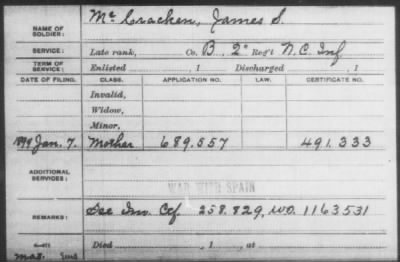 NAME OF SOLDIER: McCracken, James S.
SERVICE: Late rank, Co. B, 2" Reg't N.C. Inf
TERM OF SERVICE: Enlisted , 1 Discharged , 1
DATE OF FILING. CLASS. APPLICATION NO. LAW. CERTIFICATE NO.
Invalid,
Widow,
Minor,
1899 Jan. 7. Mother 689.557 491.333
ADDITIONAL SERVICES:
WAR WITH SPAIN
REMARKS: See Inv. Cf. 258.829, WO. 1163531
Died , 1 , at